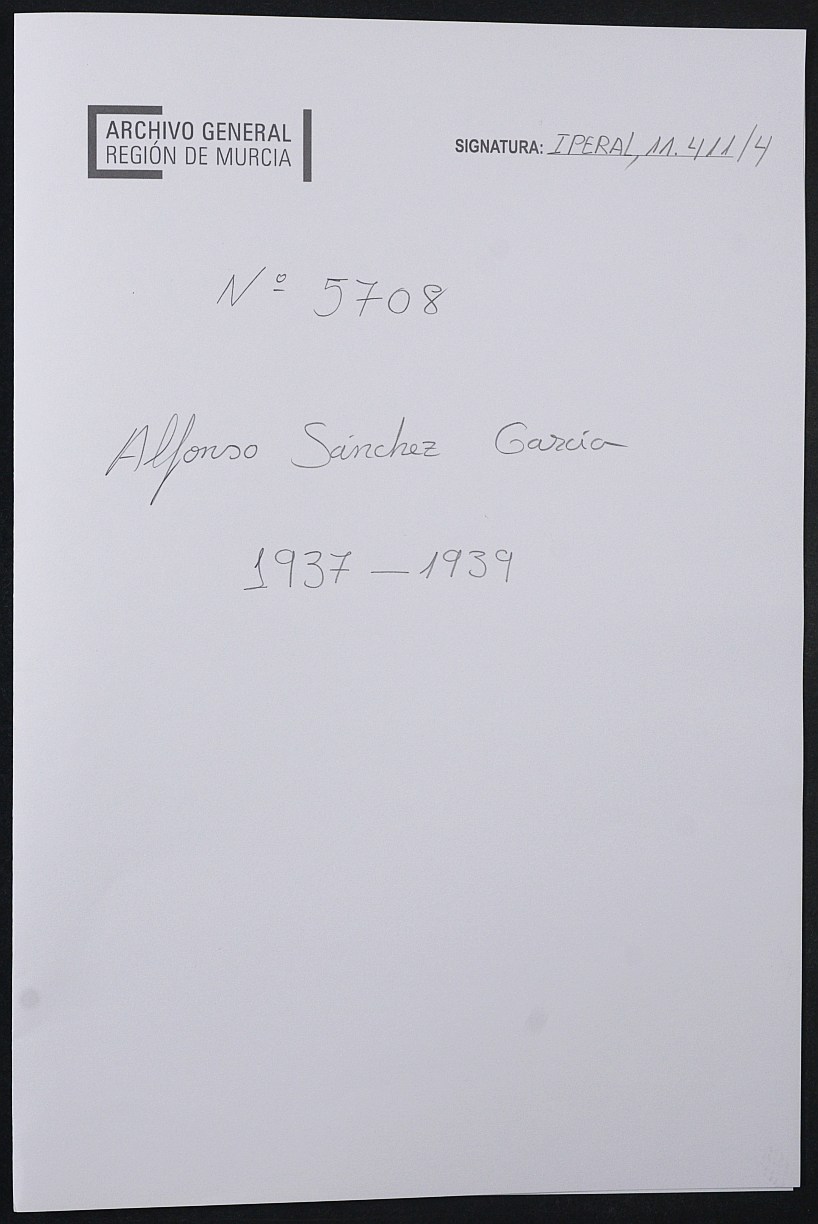 ARCHIVO GENERAL
REGIÓN DE MURCIA
SIGNATURA: IPERAL, 11.411/4
Nº 5708
Alfonso Sánchez García
1937 — 1939